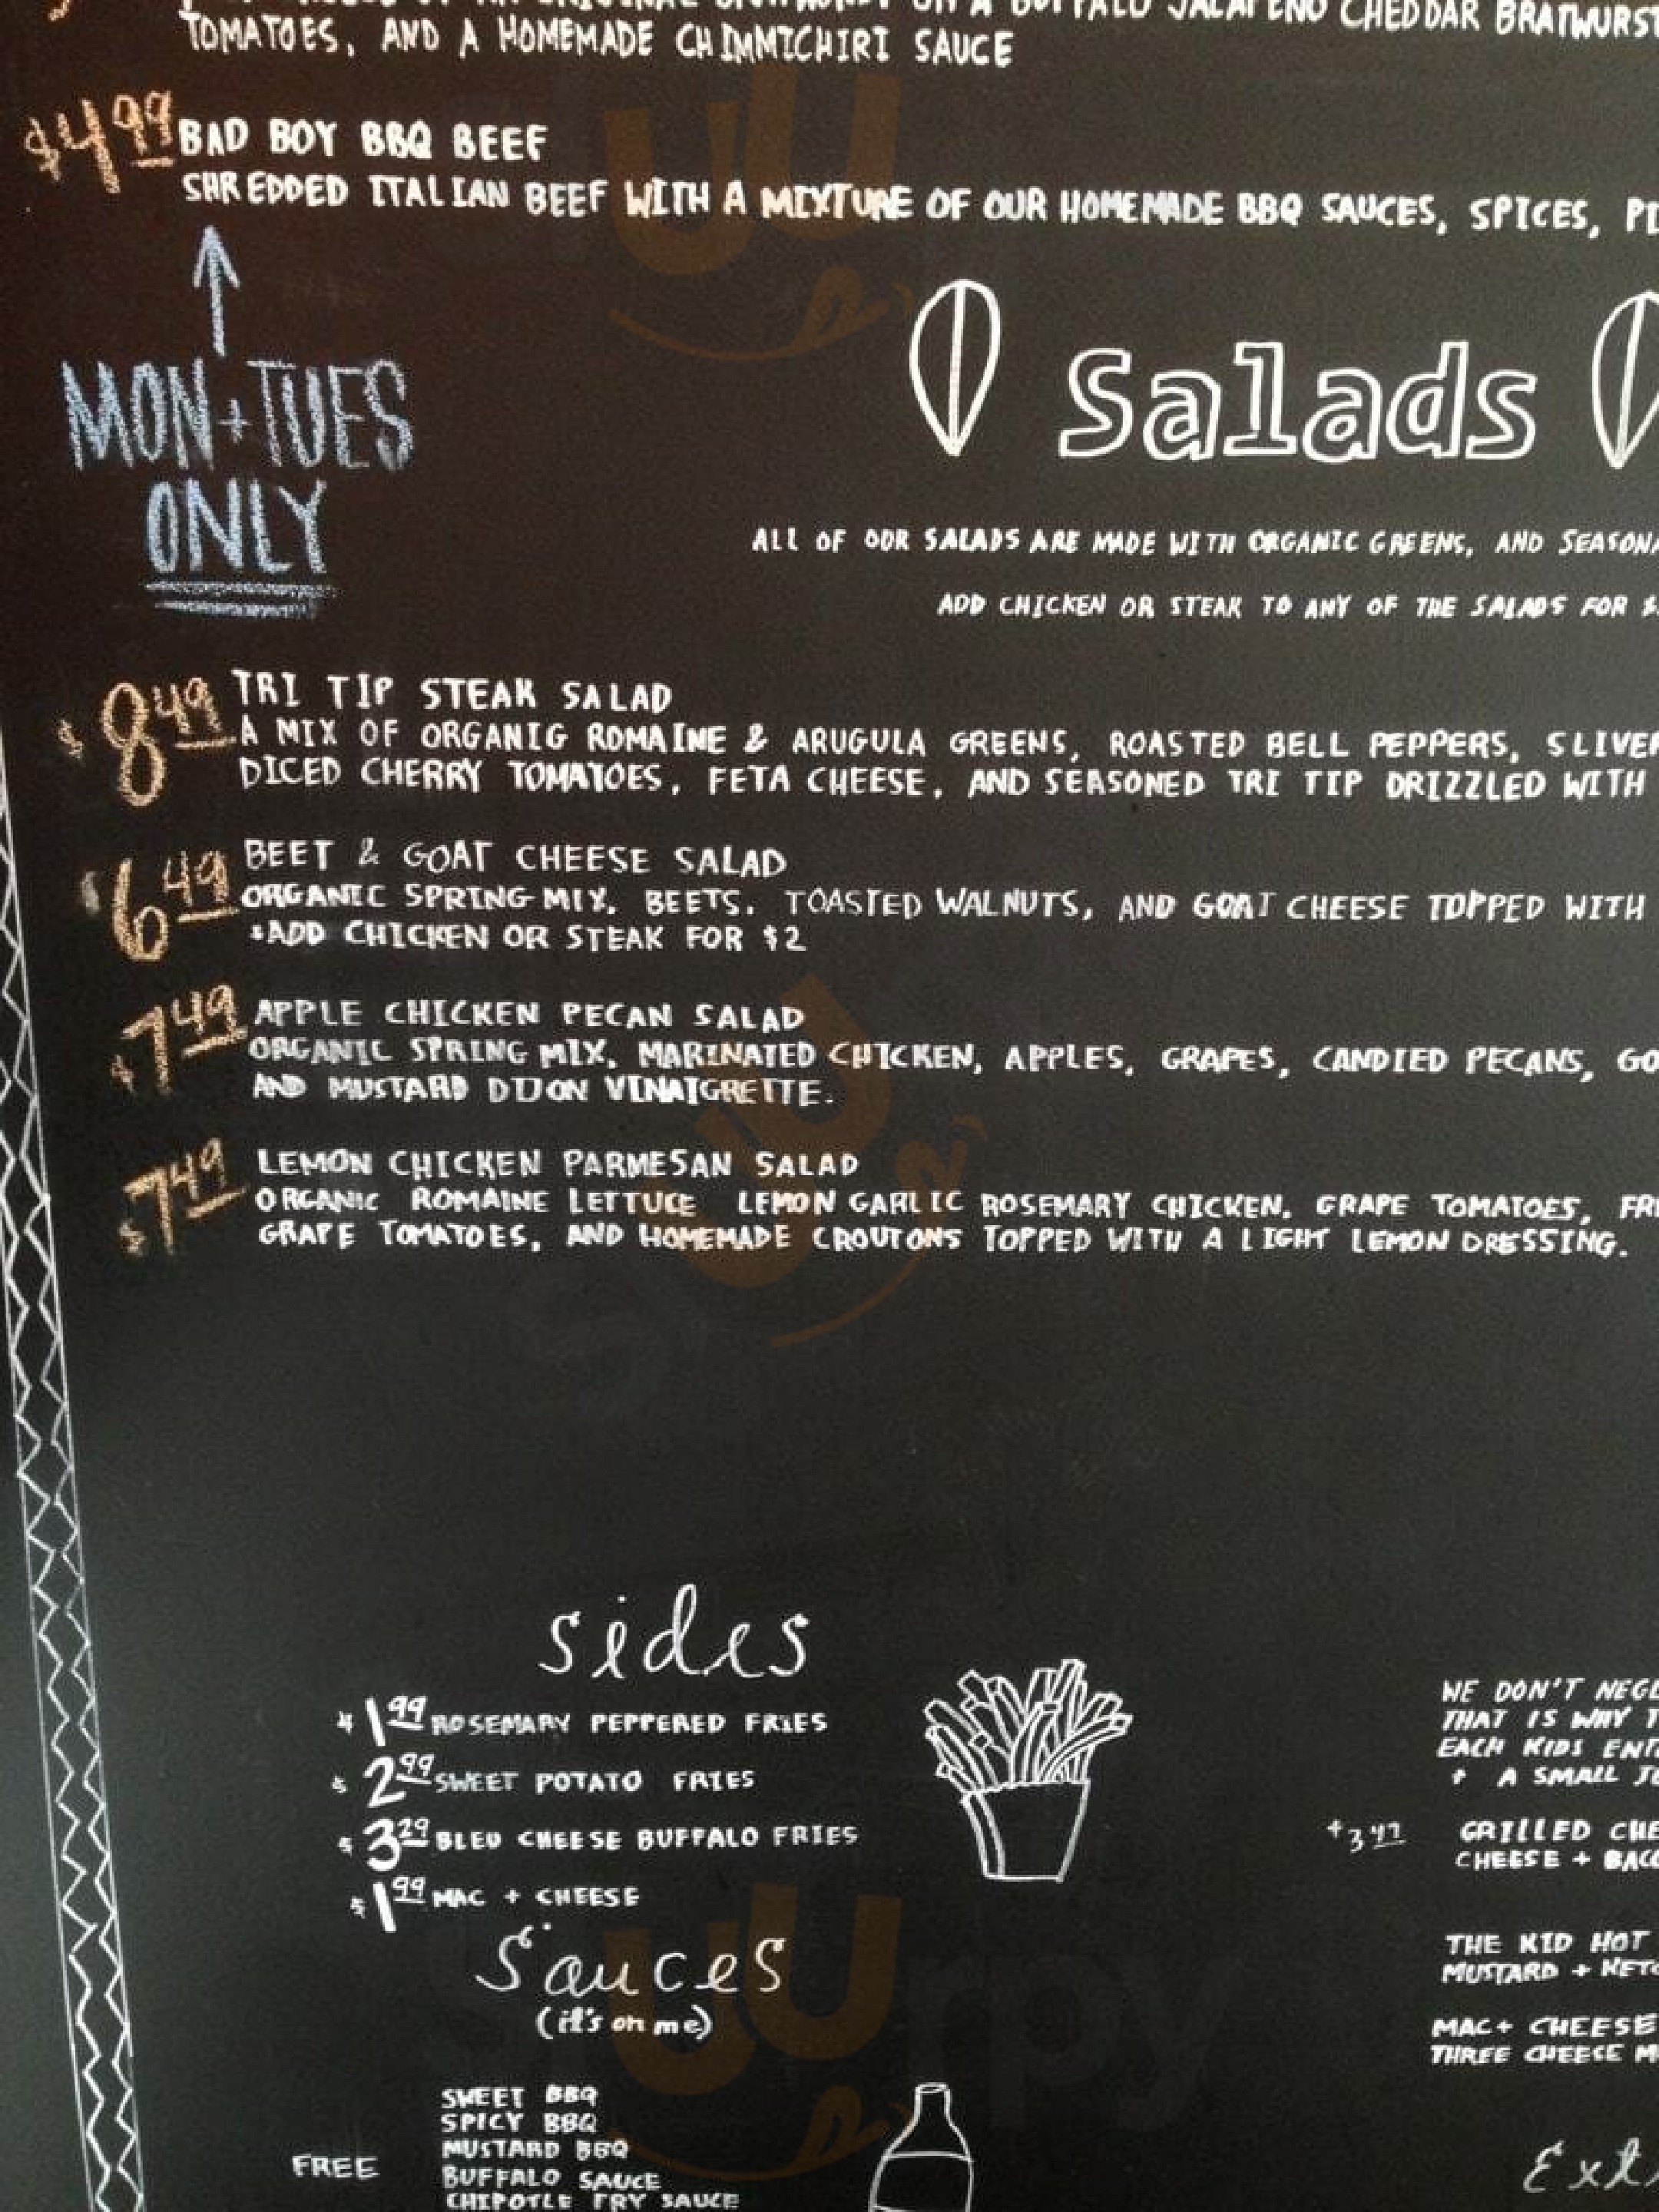 BUFFALO JALAPENO CHEDDAR BRATWURST
TOMATOES, AND A HOMEMADE CHIMMICHIRI SAUCE
$4.99 BAD BOY BBQ BEEF
SHREDDED ITALIAN BEEF WITH A MIXTURE OF OUR HOMEMADE BBQ SAUCES, SPICES,
MON + TUES
ONLY
Salads
ALL OF OUR SALADS ARE MADE WITH ORGANIC GREENS, AND
ADD CHICKEN OR STEAK TO ANY OF THE SALADS FOR
$8.49 TRI TIP STEAK SALAD
A MIX OF ORGANIG ROMAINE & ARUGULA GREENS, ROASTED BELL PEPPERS,
DICED CHERRY TOMATOES, FETA CHEESE, AND SEASONED TRI TIP DRIZZLED WITH
$6.49 BEET & GOAT CHEESE SALAD
ORGANIC SPRING MIX, BEETS, TOASTED WALNUTS, AND GOAT CHEESE TOPPED WITH
*ADD CHICKEN OR STEAK FOR $2
$7.49 APPLE CHICKEN PECAN SALAD
ORGANIC SPRING MIX, MARINATED CHICKEN, APPLES, GRAPES, CANDIED PECANS, GO
AND MUSTARD DIJON VINAIGRETTE.
$7.49 LEMON CHICKEN PARMESAN SALAD
ORGANIC ROMAINE LETTUCE LEMON GARLIC ROSEMARY CHICKEN, GRAPE TOMATOES,
GRAPE TOMATOES, AND HOMEMADE CROUTONS TOPPED WITH A LIGHT LEMON DRESSING.
sides
$1.99 ROSEMARY PEPPERED FRIES
$2.99 SWEET POTATO FRIES
$3.29 BLEU CHEESE BUFFALO FRIES
$1.99 MAC + CHEESE
Sauces
(it's on me)
FREE
SWEET BBQ
SPICY BBQ
MUSTARD BBQ
BUFFALO SAUCE
CHIPOTLE FRY SAUCE
WE DON'T NEGL
THAT IS WHY T
EACH KIDS ENT
+ A SMALL
GRILLED CHE
CHEESE + BACO
THE KID HOT
MUSTARD + KETC
MAC + CHEESE
THREE CHEESE M
Ext